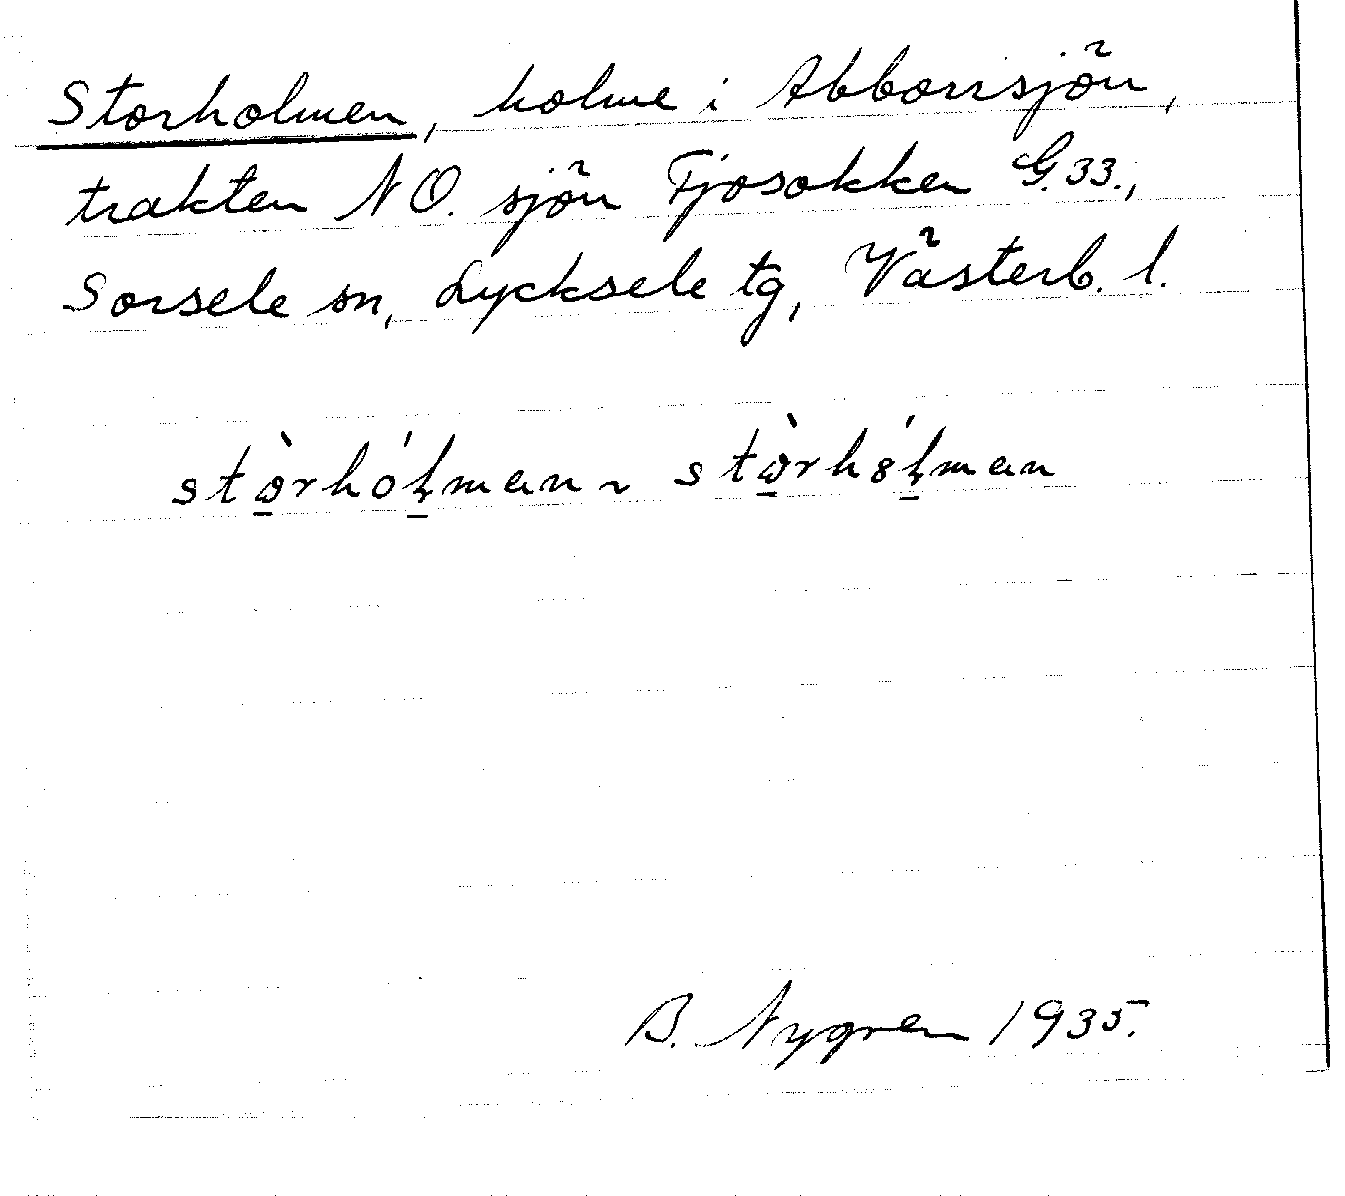 Storholmen, holme i Abborrsjön,
trakten NO. sjön Fjosokken G.33.,
Sorsele sn, Lycksele tg, Västerb. l.
stò̱rhóḻman ~ stò̱rhȣ́ḻman
B. Nygren 1935.